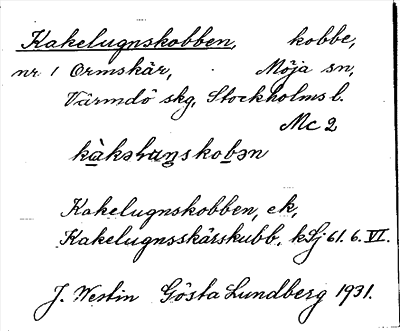 Kakelugnskobben, kobbe,
nr 1 Ormskär, Möja sn,
Värmdö skg, Stockholms l.
Mc 2
Kakelugnskobben, ek,
Kakelugnsskärskubb, kSj 61. 6. VI.
J. Westin Gösta Lundberg 1931.